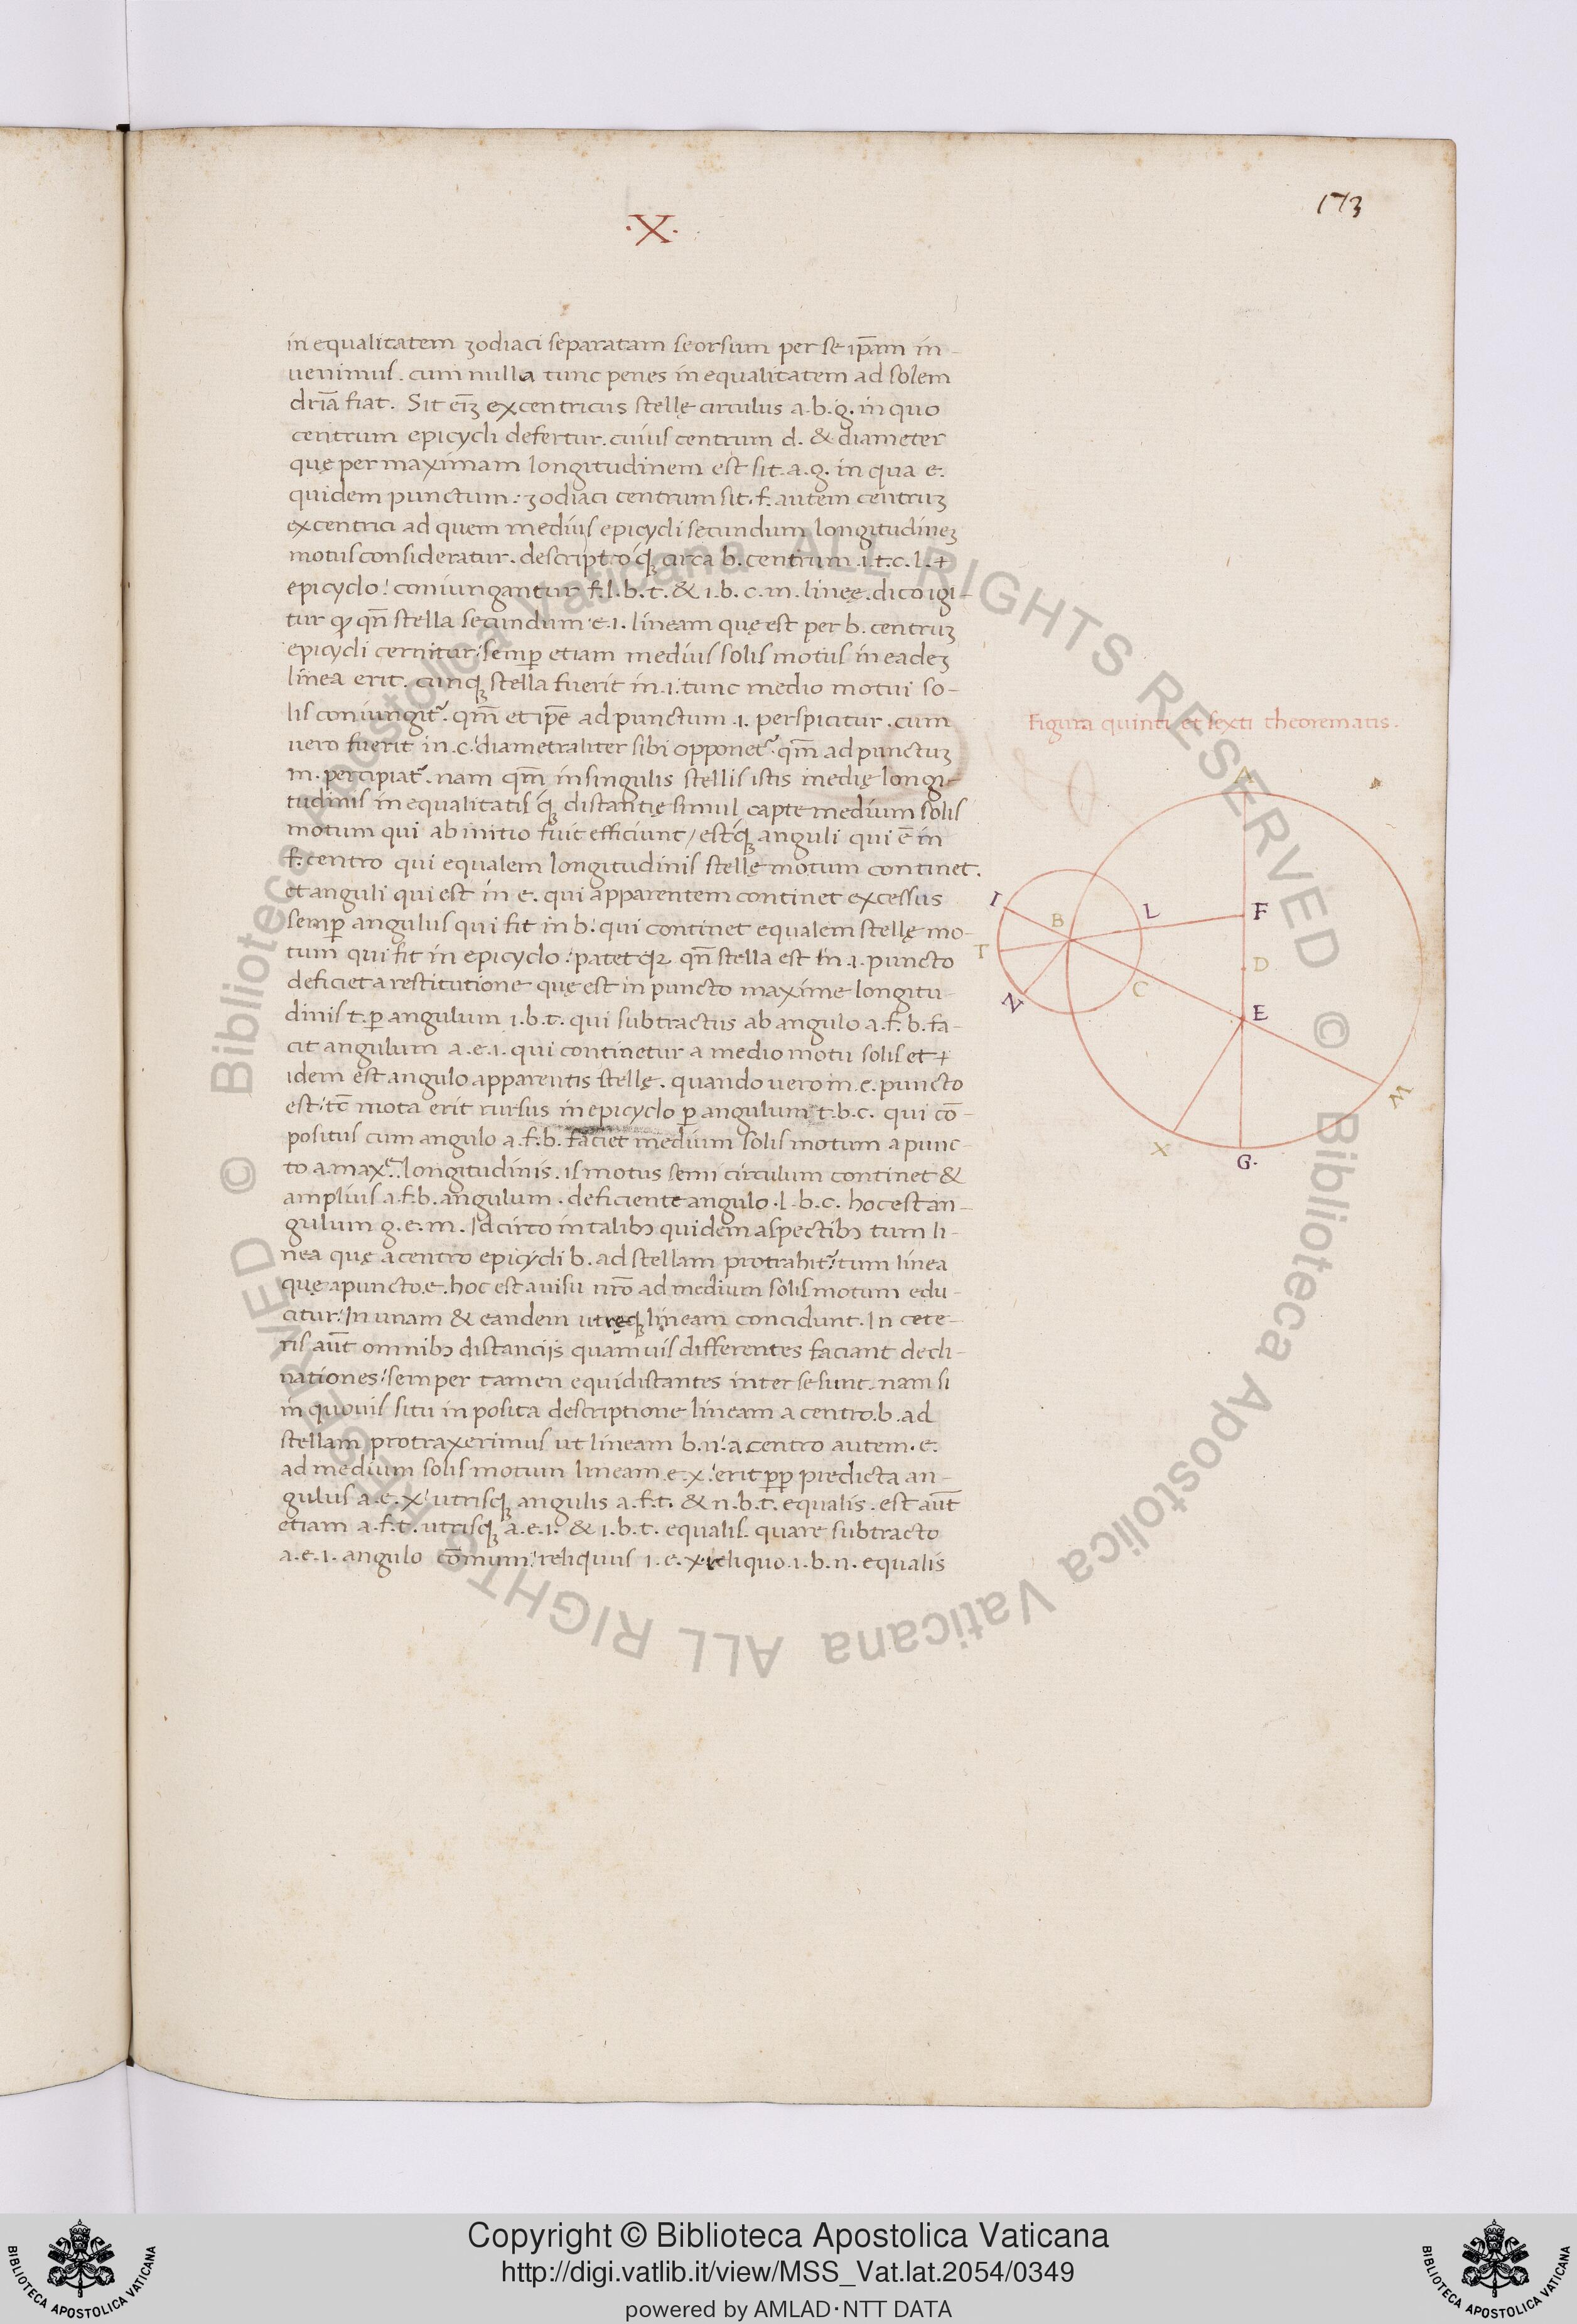 173
·X·
in equalitatem zodiaci separatam seorsum per se ip̄am in-
uenimus. cum nulla tunc penes in equalitatem ad solem
driā fiat. Sit eīꝫ excentricus stellę circulus a.b.g. in quo
centrum epicycli defertur. cuius centrum d. & diameter
quę per maximam longitudinem est sit. a.g. in qua e.
quidem punctum: zodiaci centrum sit. f. autem centruꝫ
excentrici ad quem medius epicycli secundum longitudineꝫ
motus consideratur. descriptoq́ꝫ circa b. centrum .i.t.c.l.+
epicyclo: coniungantur f.l.b.t. & i.b.c.m. lineę. dico igi-
tur ꝙ qn̄ stella secundum e.i. lineam quę est per b. centruꝫ
epicycli cernitur: semꝑ etiam medius solis motus in eadeꝫ
linea erit. cunqꝫ stella fuerit in .i. tunc medio motui so-
lis coniungitᷣ. qm̄ et ip̄e ad punctum .i. perspicitur. cum
vero fuerit in .c. diametraliter sibi opponetᷣ. qm̄ ad punctuꝫ
m. percipiatᷣ. nam qm̄ in singulis stellis istis medię longi-
tudinis in equalitatis q́ꝫ distantię simul capte medium solis
motum qui ab initio fuit efficiunt / estq́ꝫ anguli qui ē in
f. centro qui equalem longitudinis stellę motum continet.
et anguli qui est in e. qui apparentem continet excessus
semꝑ angulus qui fit in b. qui continet equalem stellę mo-
tum qui fit in epicyclo: patet qn̄ stella est in .i. puncto
deficiet a restitutione quę est in puncto maxime longitu-
dinis t. ꝑ angulum i.b.t. qui subtractus ab angulo a.f.b. fa-
cit angulum a.e.i. qui continetur a medio motu solis et +
idem est angulo apparentis stellę. quando uero in .c. puncto
est: tc̄ mota erit rursus in epicyclo ꝑ angulum t.b.c. qui cō-
positus cum angulo a.f.b. faciet medium solis motum a punc-
to a. maxᵉ. longitudinis. is motus semi circulum continet &
amplius a.f.b. angulum. deficiente angulo .l.b.c. hoc est an-
gulum g.e.m. Idcirco in talibꝫ quidem aspectibꝫ tum li-
nea quę a centro epicycli b. ad stellam protrahitᷣ: tum linea
quę a puncto .e. hoc est a uisu nr̄o ad medium solis motum edu-
citur: In unam & eandem utręqꝫ lineam concidunt. In cete-
ris aūt omnibꝫ distancijs quamuis differentes faciant decli-
nationes: semper tamen equidistantes inter se sunt. nam si
in quouis situ in posita descriptione lineam a centro .b. ad
stellam protraxerimus ut lineam b.n: a centro autem .e.
ad medium solis motum lineam .e.x: erit ꝓꝑ predicta an-
gulus a.e.x: utrisqꝫ angulis a.f.t. & n.b.t. equalis. est aūt
etiam a.f.t. utrisqꝫ a.e.i. & i.b.t. equalis. quare subtracto
a.e.i. angulo cōmuni: reliquus i.e.x. reliquo .i.b.n. equalis
Figura quinti et sexti theorematis.
A
I
B
L
F
T
D
C
N
E
M
X
G.
© Biblioteca Apostolica Vaticana ALL RIGHTS RESERVED
© Biblioteca Apostolica Vaticana ALL RIGHTS RESERVED
BIBLIOTECA APOSTOLICA VATICANA
Copyright © Biblioteca Apostolica Vaticana
http://digi.vatlib.it/view/MSS_Vat.lat.2054/0349
powered by AMLAD·NTT DATA
BIBLIOTECA APOSTOLICA VATICANA